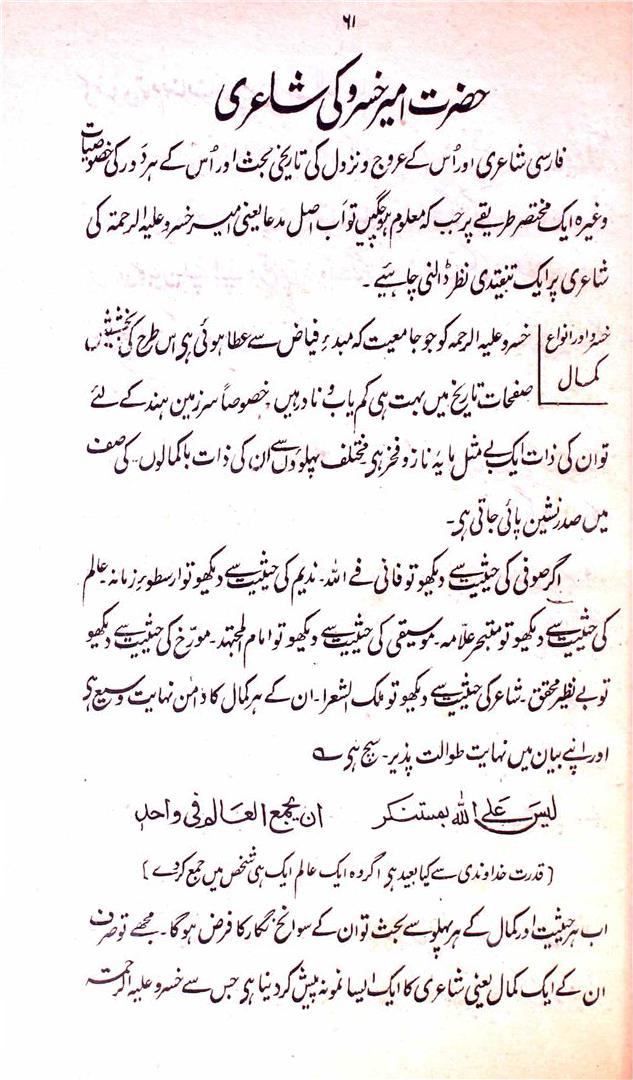 ۶۱
حضرت امیر خسرو کی شاعری
فارسی شاعری اور اُس کے عروج و نزول کی تاریخی بحث اور اُس کے ہر دَور کی خصوصیات
وغیرہ ایک مختصر طریقے پر جب کہ معلوم ہو چکیں تو اَب اصل مدعا یعنی امیر خسرو علیہ الرحمۃ کی
شاعری پر ایک تنقیدی نظر ڈالنی چاہئیے۔
خسرو اور انواع
کمال
خسرو علیہ الرحمہ کو جو جامعیت کہ مبدءِ فیاض سے عطا ہوئی ہی اس طرح کی بخششیں
صفحات تاریخ میں بہت ہی کم یاب و نادر ہیں خصوصاً سرزمین ہند کے لئے
تو ان کی ذات ایک بے مثل مایۂ ناز و فخر ہی مختلف پہلوؤں سے ان کی ذات باکمالوں کی صف
میں صدر نشین پائی جاتی ہی۔
اگر صوفی کی حیثیت سے دیکھو تو فانی فے اللہ۔ ندیم کی حیثیت سے دیکھو تو ارسطوءِ زمانہ۔ عالم
کی حیثیت سے دیکھو تو متبحر علّامہ۔ موسیقی کی حیثیت سے دیکھو تو امام المجتہد۔ مورّخ کی حیثیت سے دیکھو
تو بے نظیر محقق۔ شاعر کی حیثیت سے دیکھو تو ملک الشعرا۔ ان کے ہر کمال کا دامن نہایت وسیع ہی
اور اپنے بیان میں نہایت طوالت پذیر۔ سچ ہی ؎
لیس علی اللہ بمستنکر ان یجمع العالم فی واحد
(قدرت خداوندی سے کیا بعید ہی اگر وہ ایک عالم ایک ہی شخص میں جمع کر دے)
اب ہر حیثیت اور کمال کے ہر پہلو سے بحث تو ان کے سوانح نگار کا فرض ہوگا۔ مجھے تو صرف
ان کے ایک کمال یعنی شاعری کا ایک ایسا نمونہ پیش کر دینا ہی جس سے خسرو علیہ الرحمتہ